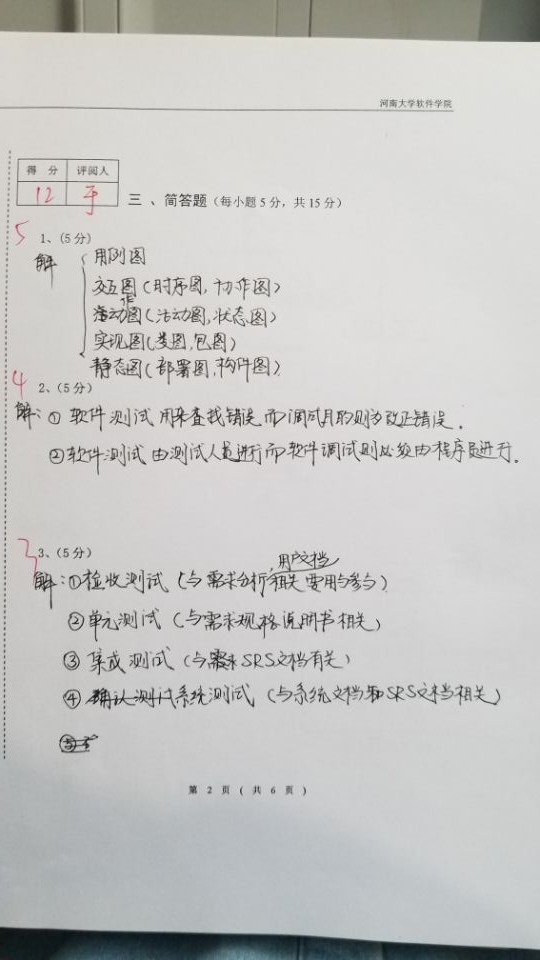 河南大学软件学院
得 分 评阅人
12
三 、简答题（每小题5分，共15分）
5
1、(5分)
解 用例图
交互图(时序图,协作图)
活动图(活动图,状态图)
实现图(类图,包图)
静态图(部署图,构件图)
4
2、(5分)
解:①软件测试用来查找错误,而调试目的则为改正错误.
②软件测试由测试人员进行而软件调试则必须由程序员进行.
3
3、(5分)
用户文档
解:①检收测试(与需求分析相关 要用与参与)
②单元测试(与需求规格说明书相关)
③集成测试(与SRS文档有关)
④系统测试(与系统文档和SRS文档相关)
第 2 页 ( 共 6 页 )